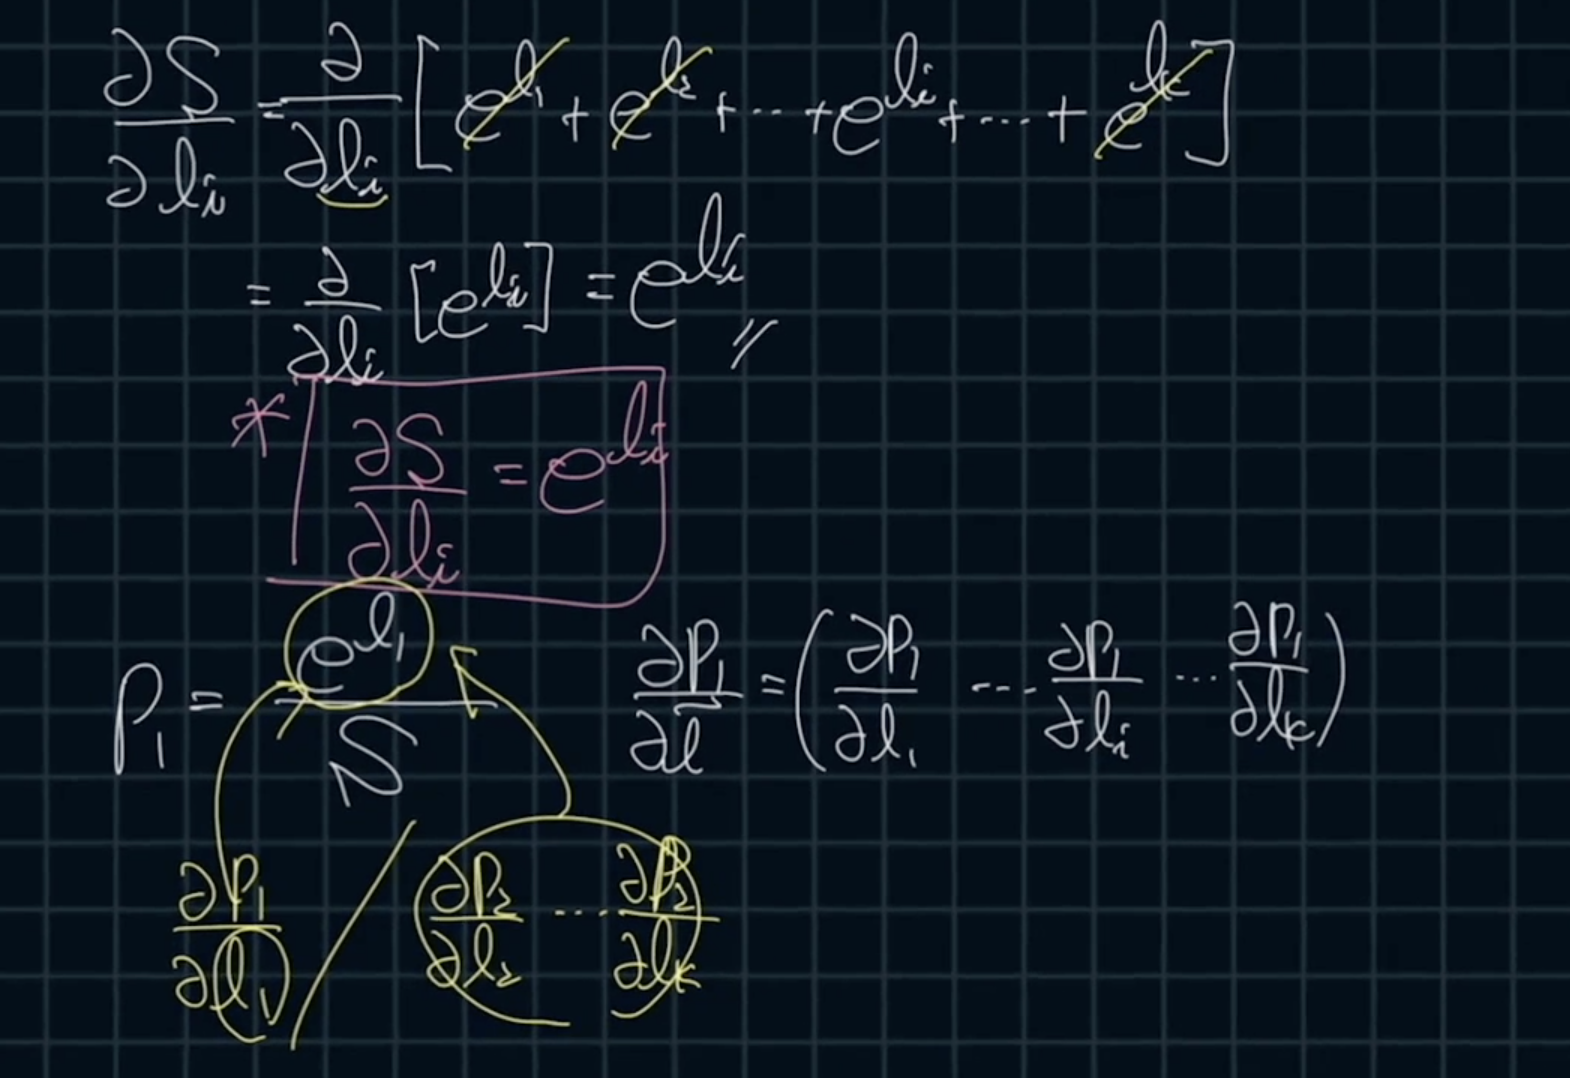 ∂S/∂lᵢ = ∂/∂lᵢ [e^l₁ + e^l₂ + ⋯ + e^lᵢ + ⋯ + e^l_K]
= ∂/∂lᵢ [e^lᵢ] = e^lᵢ //
* ∂S/∂lᵢ = e^lᵢ
P₁ = e^l₁/S
∂P₁/∂l̄ = (∂P₁/∂l₁ ⋯ ∂P₁/∂lᵢ ⋯ ∂P₁/∂l_K)
∂P₁/∂l₁ / ∂P₂/∂l₂ ⋯ ∂P₂/∂l_K